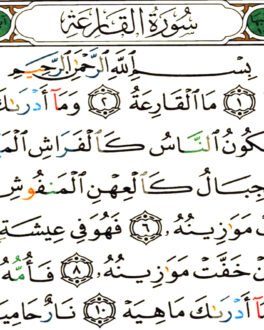 سُورَةُ القَارِعَةِ
بِسْمِ ٱللَّهِ ٱلرَّحْمَٰنِ ٱلرَّحِيمِ
١ مَا ٱلْقَارِعَةُ ٢ وَمَآ أَدْرَىٰكَ
يَكُونُ ٱلنَّاسُ كَٱلْفَرَاشِ
ٱلْجِبَالُ كَٱلْعِهْنِ ٱلْمَنفُوشِ
مَوَٰزِينُهُۥ ٦ فَهُوَ فِى عِيشَةٍ
خَفَّتْ مَوَٰزِينُهُۥ ٨ فَأُمُّهُۥ
أَدْرَىٰكَ مَا هِيَهْ ١٠ نَارٌ حَامِيَةٌۢ